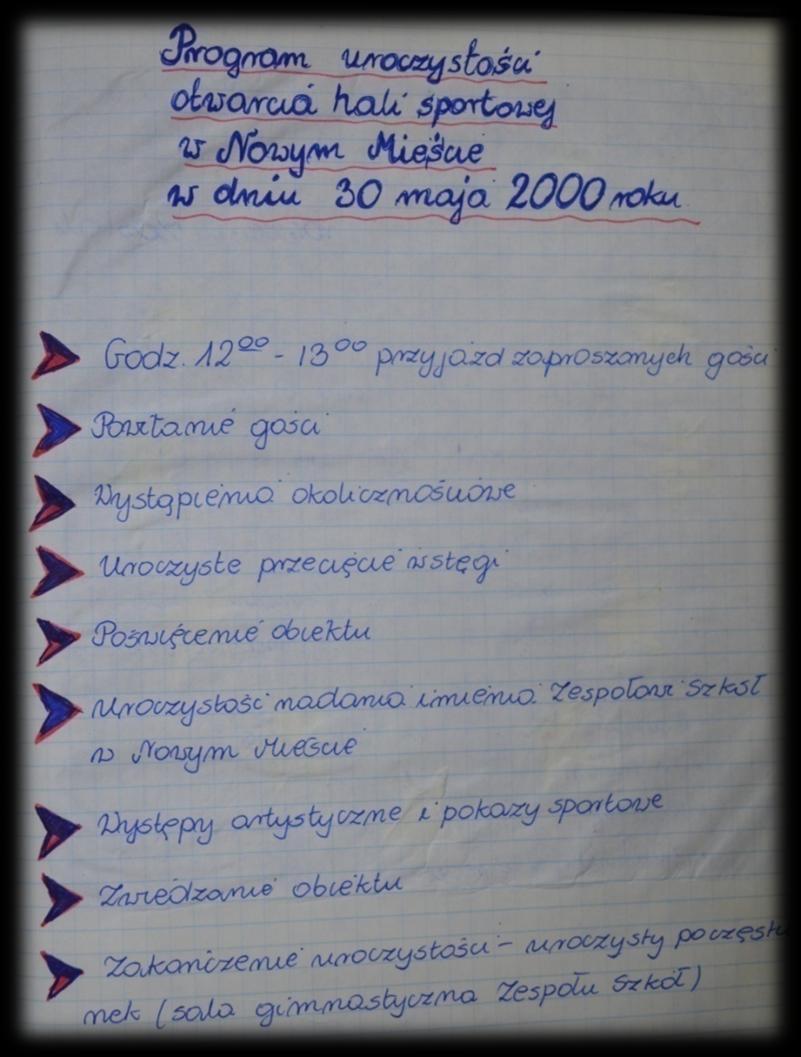 Program uroczystości
otwarcia hali sportowej
w Nowym Mieście
w dniu 30 maja 2000 roku
Godz. 12⁰⁰ - 13⁰⁰ przyjazd zaproszonych gości
Powitanie gości
Wystąpienia okolicznościowe
Uroczyste przecięcie wstęgi
Poświęcenie obiektu
Uroczystość nadania imienia Zespołowi Szkół
w Nowym Mieście
Występy artystyczne i pokazy sportowe
Zwiedzanie obiektu
Zakończenie uroczystości - uroczysty poczęstu
nek (sala gimnastyczna Zespołu Szkół)